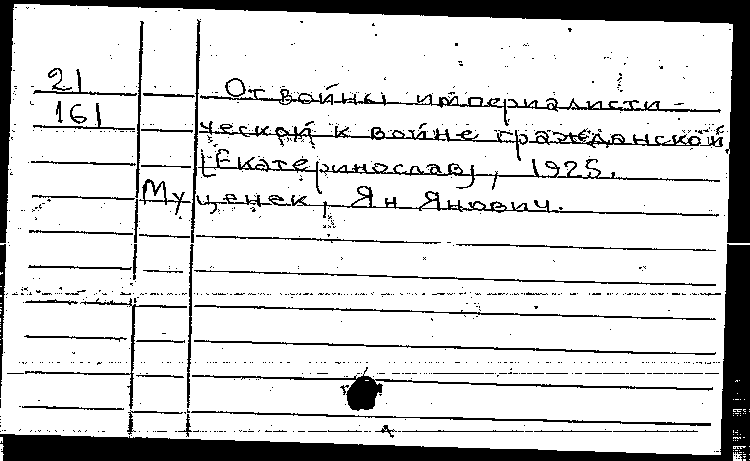 21
161
От войны империалисти-
ческой к войне гражданской
[Екатеринослав], 1925.
Муценек, Ян Янович.